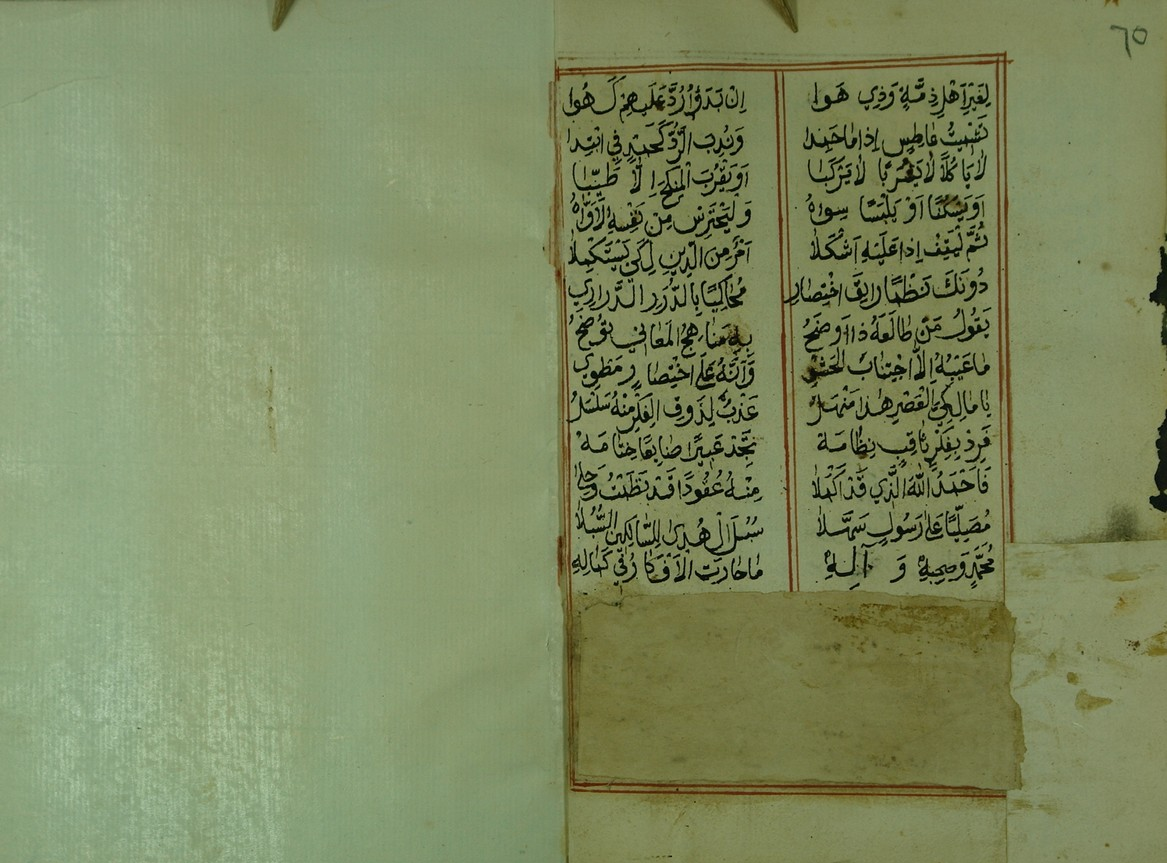 ٦٥
لِغَيْرِ اَهْلِ ذِمَّةٍ وَذِي هَوا اِنْ بَدَؤُا رُدَّ عَلَيْهِمْ كَ هُوا
تَشْمِيتُ عَاطِسٍ إِذَا مَا حَمِدا وَنُدِبَ الرَّدُّ كَحَمْدٍ فِي ابْتِدا
لَا يَا كُلاً لَا يَشْرَبَا لَا يَرْكَبَا اَوْ يَقْرُبَ الْمَنْكَحَ اِلَّا طَيِّبَا
اَوْ يَسْكُنَا اَوْ يَلْبَسَا سِوَاهُ وَلْيَحْتَرِسْ مِنْ نَفْسِهِ الْاَوَّاهُ
ثُمَّ لْيَقِفْ اِذَا عَلَيْهِ اَشْكَلَا اَمْرٌ مِنَ الدِّينِ لِكَيْ يَسْتَكْمِلَا
دُونَكَ نَظْمًا رَايِقَ اخْتِصَارِ مُحَاكِيًا بِالدُّرَرِ الدَّرَارِي
يَقُولُ مَنْ طَالَعَهُ ذَا اَوْضَحُ بِهِ مَنَاهِجُ الْمَعَانِي تُوضَحُ
مَا عَيْبُهُ اِلَّا اجْتِنَابُ الْحَشْوِ وَاَنَّهُ عَلَى اخْتِصَارٍ مَطْوِي
يَا مَالِكِيَّ الْعَصْرِ هٰذَا مَنْهَلُ عَذْبٌ لِذَوِي الْفِكْرِ مِنْهُ سَلْسَلُ
فَرِدْ بِفِكْرٍ ثَاقِبٍ نِظَامَهْ تَجِدْ عَبِيرًا ضَايِعًا خِتَامَهْ
فَاحْمَدُ اللهَ الَّذِي قَدْ اَكْمَلَا مِنْهُ عُقُودًا قَدْ نَظَمْتُ وَحُلَا
مُصَلِّيًا عَلَى رَسُولٍ سَهَّلَا سُبْلَ الْهُدَى لِلسَّالِكِينَ السُّبُلَا
مُحَمَّدٍ وَصَحْبِهِ وَ آلِهِ مَا حَارَتِ الْاَفْكَارُ فِي كَمَالِهِ